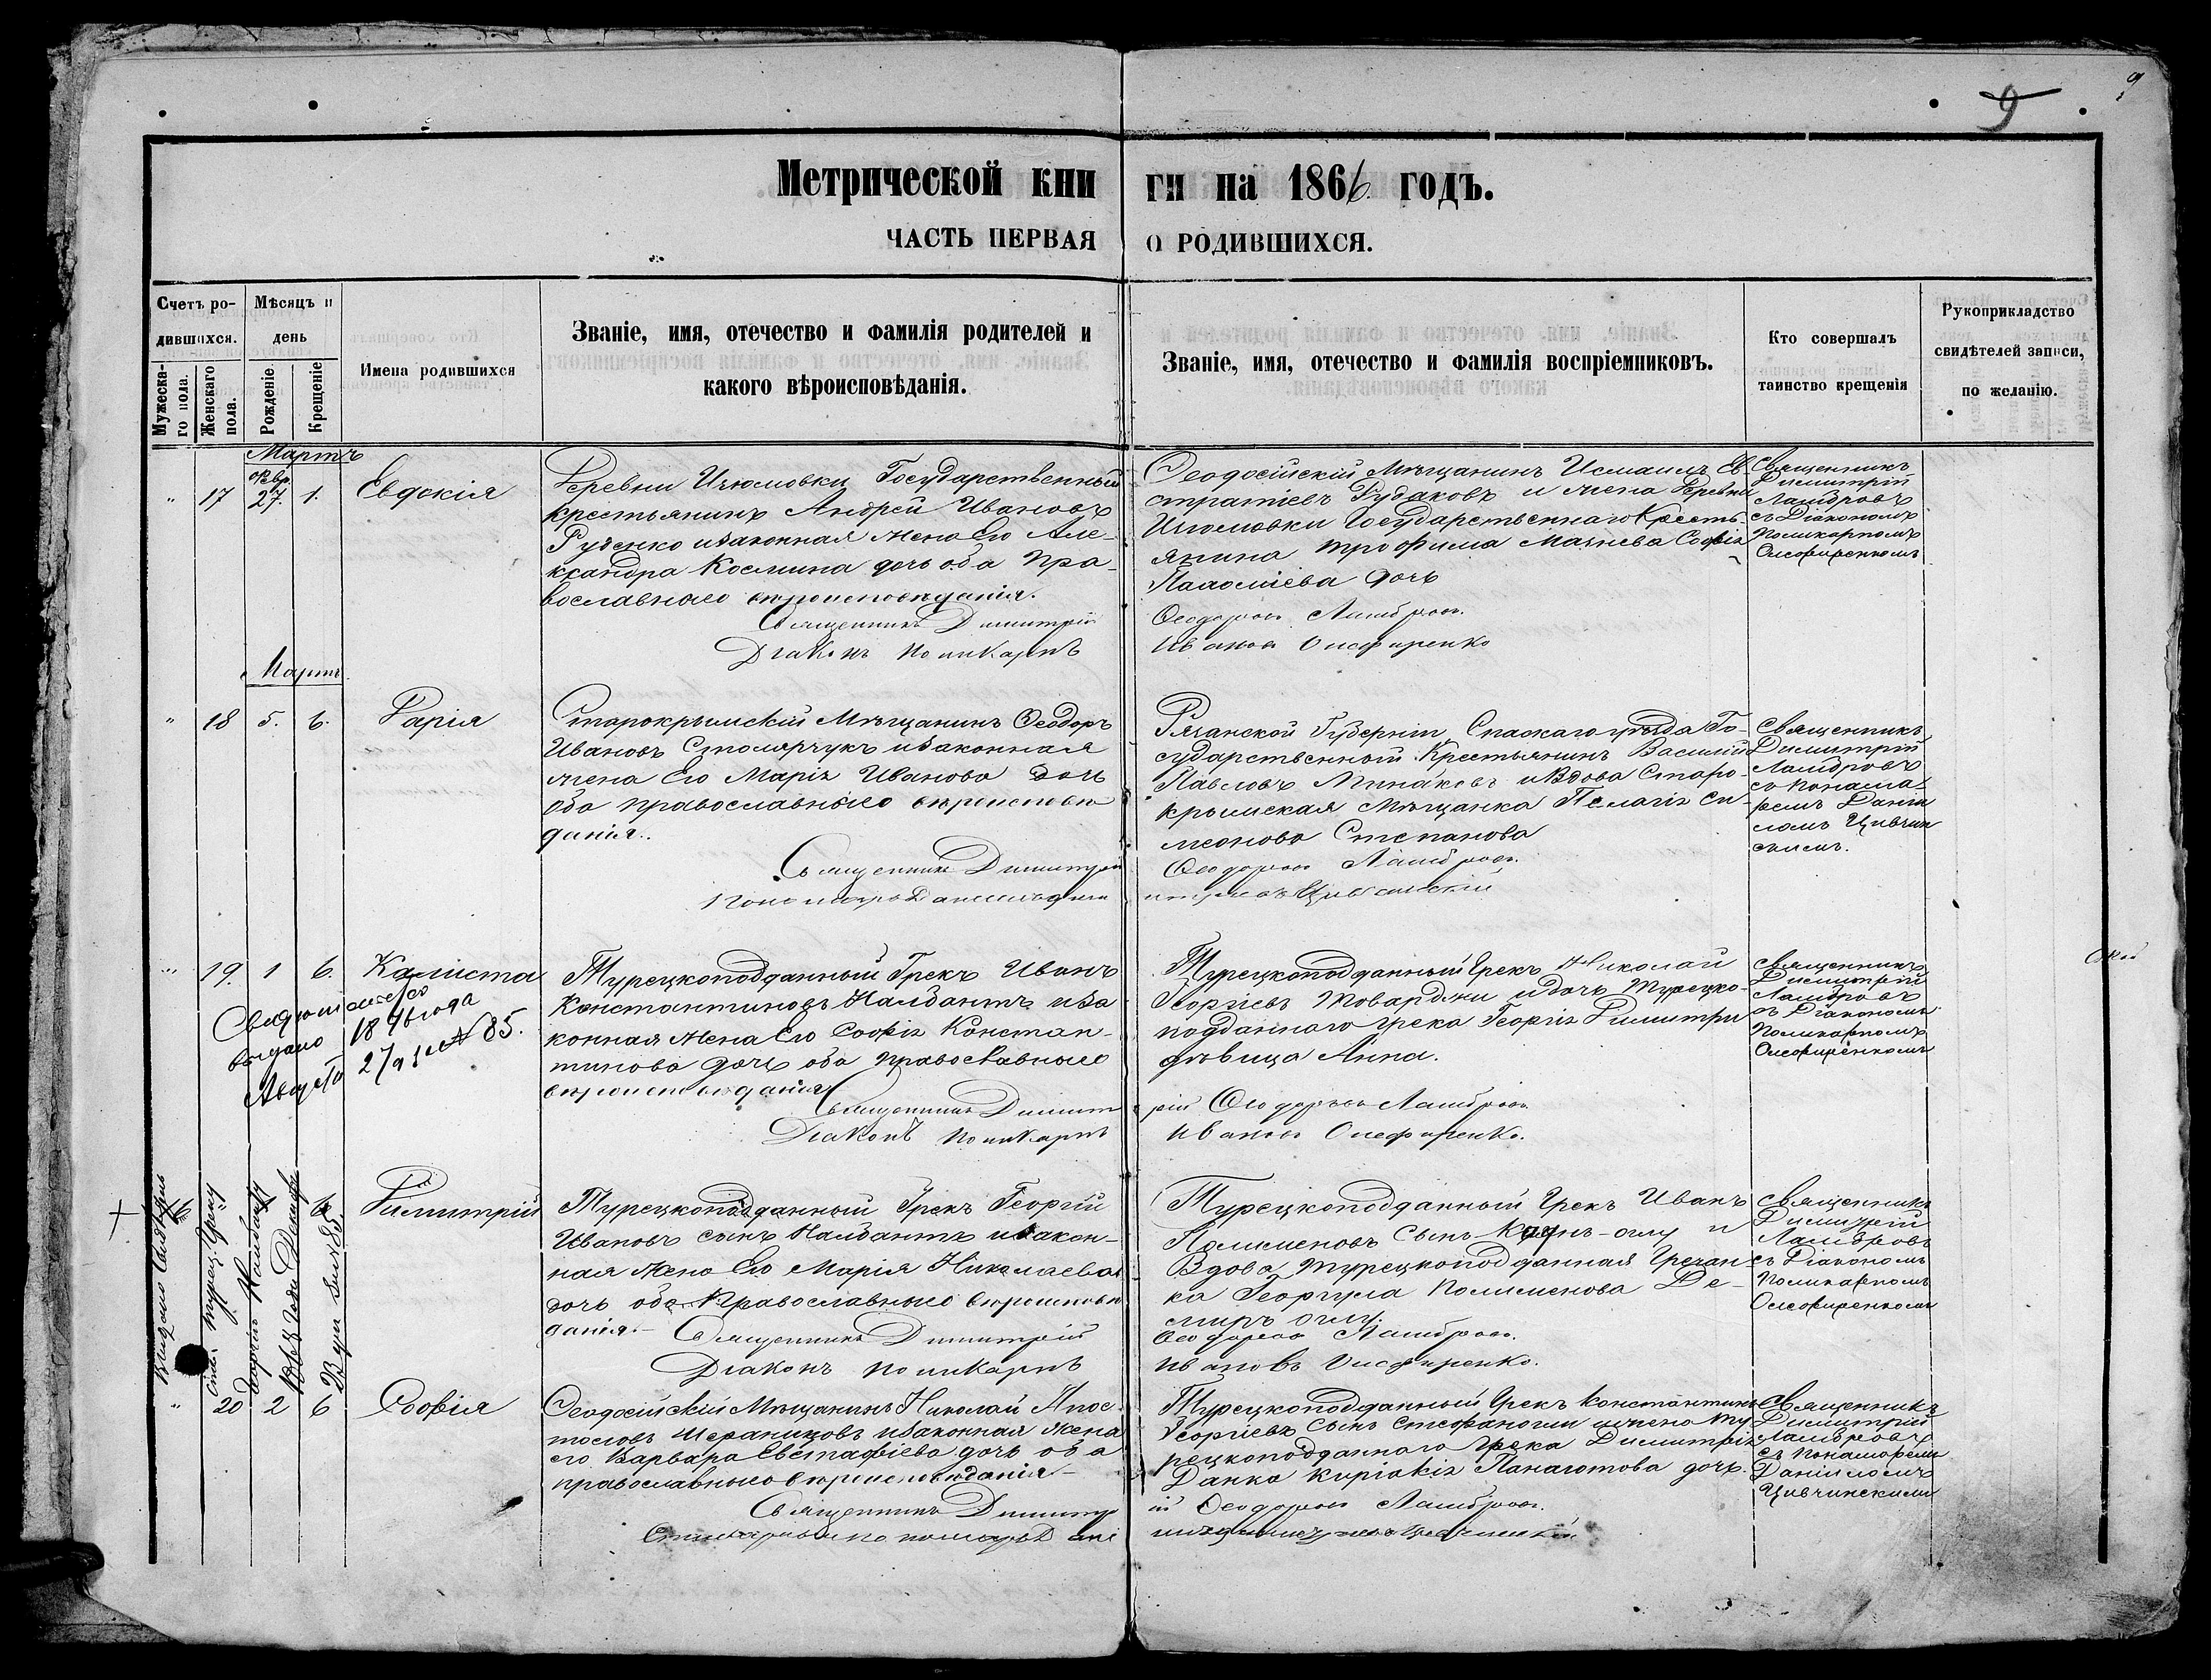 9
9
Метрической книги на 1866 годъ.
ЧАСТЬ ПЕРВАЯ О РОДИВШИХСЯ.
Счетъ родившихся.
Мужескаго пола.
Женскаго пола.
Мѣсяцъ и день
Рожденіе.
Крещеніе.
Имена родившихся
Званіе, имя, отечество и фамилія родителей и
какого вѣроисповѣданія.
Званіе, имя, отечество и фамилія воспріемниковъ.
Кто совершалъ
таинство крещенія
Рукоприкладство
свидѣтелей записи,
по желанію.
Мартъ
" 17 февр. 27. 1. Евдокія
Деревни Изюмовки Государственный
крестьянинъ Андрей Ивановъ
Руденко и законная жена Его Але-
ксандра Космина дочь оба Пра-
вославнаго вѣроисповѣданія.
Священникъ Димитрій
Діаконъ Поликарпъ
Ѳеодосійскій Мѣщанинъ Исмаилъ Ев-
стратіевъ Рудаковъ и жена деревни
Изюмовки Государственнаго Кресть-
янина Трофима Софія
дочь
Ѳеодоровъ Ламбровъ.
Ивановъ Олефиренко
Священникъ
Димитрій
Ламбровъ
съ Діакономъ
Поликарпомъ
Олефиренкомъ
Мартъ.
" 18 5. 6. Дарія
Старокрымскій Мѣщанинъ Ѳеодоръ
Ивановъ Столярчукъ и законная
жена Его Марія Иванова дочь
оба православнаго вѣроисповѣ
данія.
Священникъ Димитрій
Пономарь Даніилъ
Рязанской Губерніи Спаскаго уѣзда Го-
сударственный Крестьянинъ Василій
Павловъ Минаковъ и Вдова Старо-
крымская Мѣщанка Пелагія Си-
меонова Степанова
Ѳеодоровъ Ламбровъ.
Цивчинскій
Священникъ
Димитрій
Ламбровъ
съ Понама-
ремъ Дани
ломъ Цивчин
скимъ.
" 19. 1 6. Калиста
Свидѣтельство
выдано 18 года
Августа 27 № 85.
Турецкоподданный Грекъ Иванъ
Константиновъ Налбантъ и за
конная жена Его Софія Констан-
тинова дочь оба православнаго
вѣроисповѣданія
Священникъ Димит
Діаконъ Поликарпъ
Турецкоподданный Грекъ Николай
Георгіевъ Товарджи и дочь Турецко-
подданного Грека Георгія Димитри
дѣвица Анна.
рій Ѳеодоровъ Ламбровъ
Ивановъ Олефиренко.
Священникъ
Димитрій
Ламбровъ
съ Діакономъ
Поликарпомъ
Олефиренкомъ
6 Димитрій
Турецкоподданный Грекъ Георгій
Ивановъ сынъ Налбантъ и закон-
ная жена Его Марія Николаева
дочь оба Православнаго вѣроисповѣ
данія.
Священникъ Димитрій
Діаконъ Поликарпъ
Турецкоподданный Грекъ Иванъ
Полименовъ Сынъ оглу и
Вдова Турецкоподданная Гречан-
ка Георгула Полименова Де-
миръ оглу.
Ѳеодоровъ Ламбровъ.
Ивановъ Олефиренко.
Священникъ
Димитрій
Ламбровъ
съ Діакономъ
Поликарпомъ
Олефиренкомъ
" 20 2 6 Софія
Ѳеодосійскій Мѣщанинъ Николай Апос-
толовъ и законная жена
его Варвара Евстафіева дочь оба
православнаго вѣроисповѣданія
Священникъ Димитр
Турецкоподданный Грекъ Константинъ
Георгіевъ Сынъ Стефаноглу и жена Ту
рецкоподданного Грека Димитрія
Данка Киріакія Панаготова дочь.
ій Ѳеодоровъ Ламбровъ.
Священникъ
Димитрій
Ламбровъ
съ Понамаремъ
Даніиломъ
Цивчинскимъ